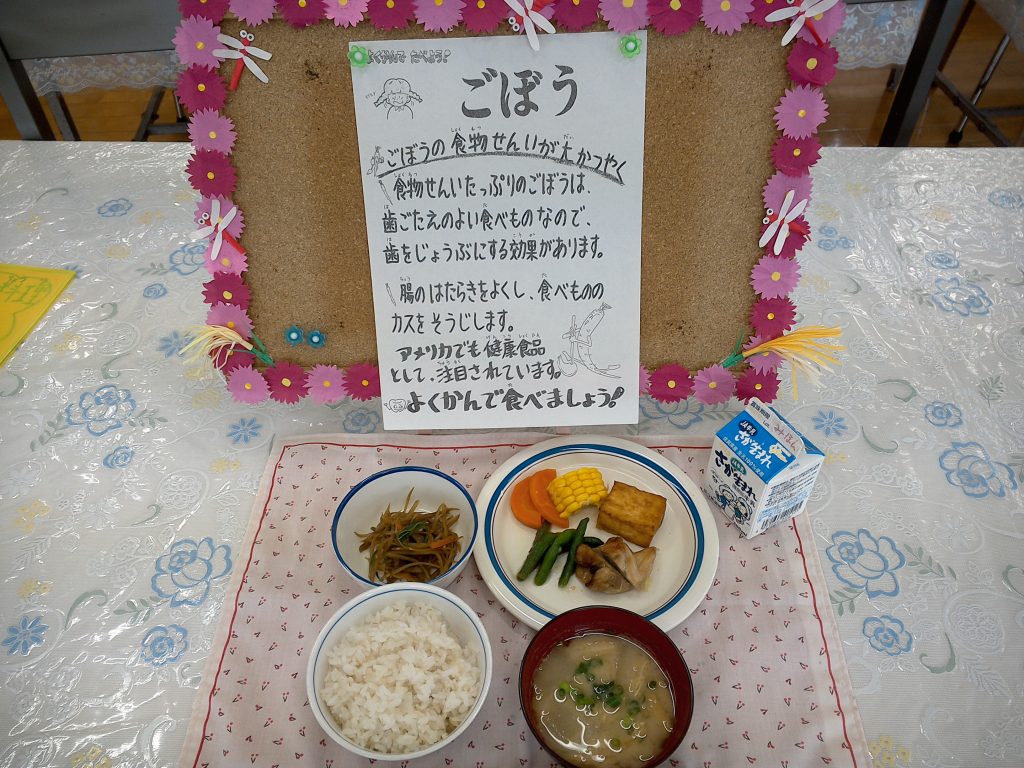 よくかんで たべよう!
ごぼう
ごぼうの食物せんいが大かつやく
食物せんいたっぷりのごぼうは、
歯ごたえのよい食べものなので、
歯をじょうぶにする効果があります。
腸のはたらきをよくし、食べものの
カスをそうじします。
アメリカでも健康食品
として、注目されています。
よくかんで食べましょう!
さが生まれ
さが生まれ